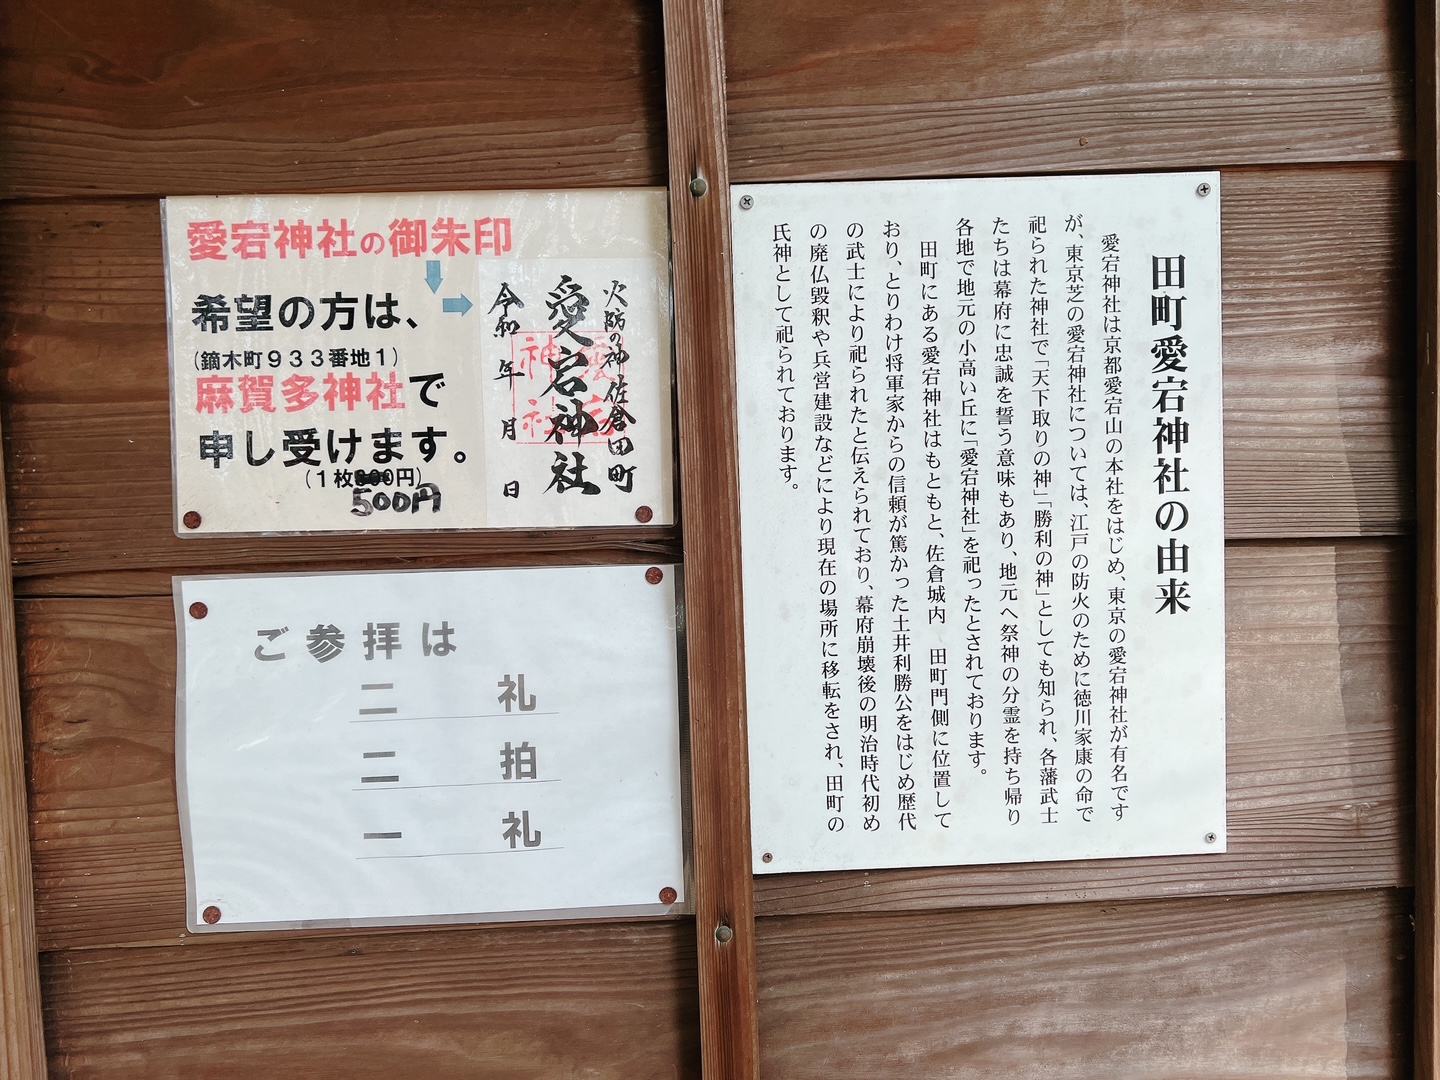 愛宕神社の御朱印
希望の方は、
(鏑木町９３３番地１)
麻賀多神社で
申し受けます。
(１枚300円)
500円
火防の神 佐倉田町
愛宕神社
令和 年 月 日
愛宕
神社
ご参拝は
二 礼
二 拍
一 礼
田町愛宕神社の由来
愛宕神社は京都愛宕山の本社をはじめ、東京の愛宕神社が有名です
が、東京芝の愛宕神社については、江戸の防火のために徳川家康の命で
祀られた神社で「天下取りの神」「勝利の神」としても知られ、各藩武士
たちは幕府に忠誠を誓う意味もあり、地元へ祭神の分霊を持ち帰り
各地で地元の小高い丘に「愛宕神社」を祀ったとされております。
田町にある愛宕神社はもともと、佐倉城内　田町門側に位置して
おり、とりわけ将軍家からの信頼が篤かった土井利勝公をはじめ歴代
の武士により祀られたと伝えられており、幕府崩壊後の明治時代初め
の廃仏毀釈や兵営建設などにより現在の場所に移転をされ、田町の
氏神として祀られております。